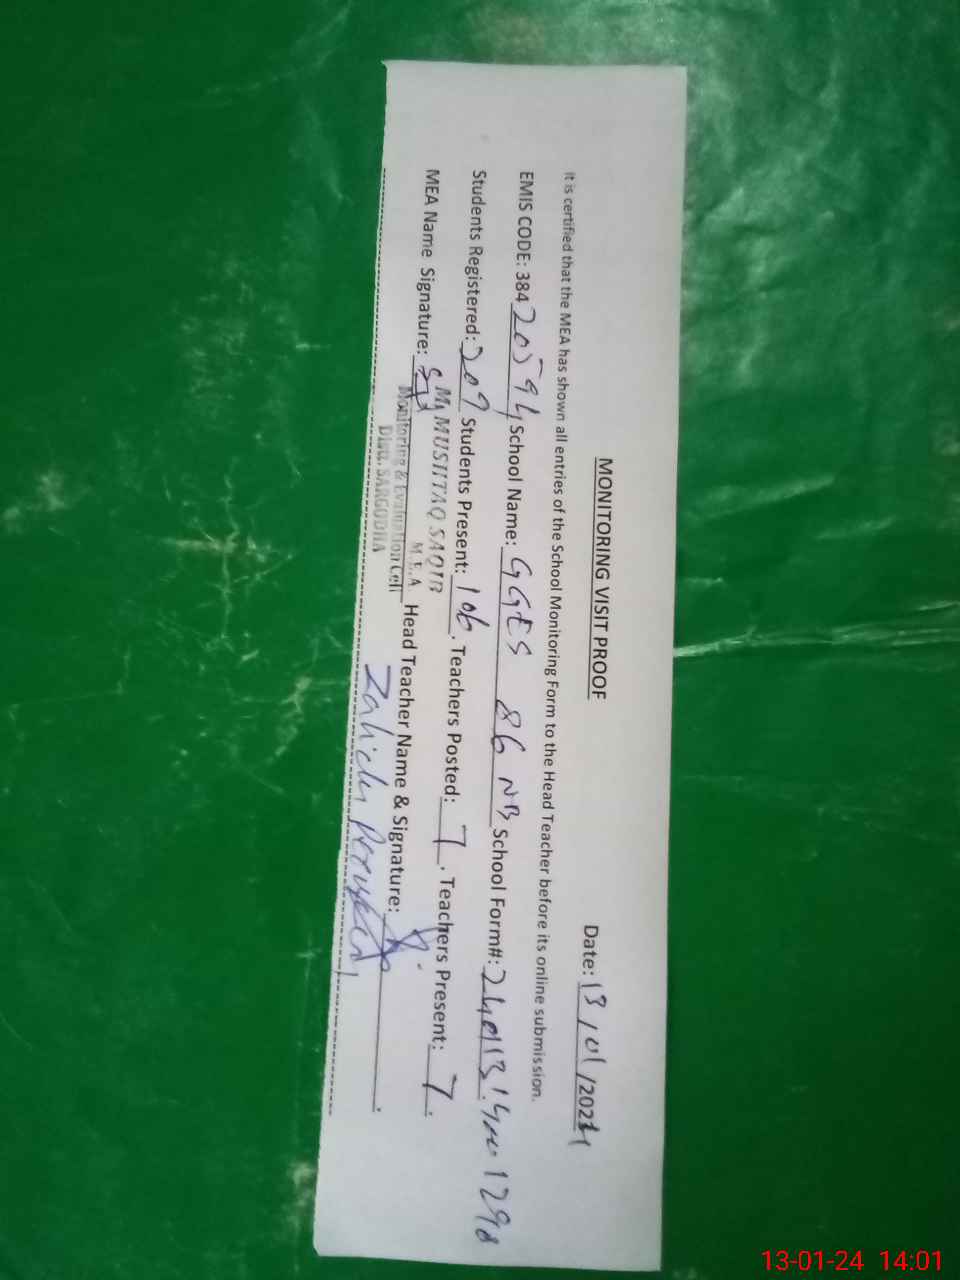 MONITORING VISIT PROOF
Date: 13/01/2024
It is certified that the MEA has shown all entries of the School Monitoring Form to the Head Teacher before its online submission.
EMIS CODE: 38420594 School Name: GGES 86 NB School Form#:
Students Registered: 209 Students Present: 106. Teachers Posted: 7. Teachers Present: 7.
MEA Name Signature: MUSHTAQ SAQIB Head Teacher Name & Signature:
M.E.A
Monitoring & Evaluation Cell
Distt. SARGODHA
13-01-24 14:01